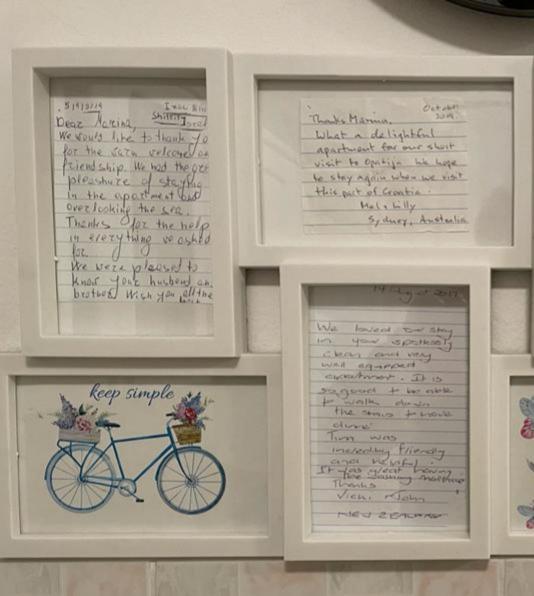 Dear Marina,
We would like to thank yo
for the warm welcome an
friendship. We had the gre
pleashure of staying
in the apartment and
overlooking the sea.
Thanks for the help
in everything we asked
for.
We were pleased to
know your husband an
brother. Wish you all the
October
2019
Thanks Marina,
What a delightful
apartment for our short
visit to Opatija. We hope
to stay again when we visit
this part of Croatia.
Mel & Lilly
Sydney, Australia
keep simple
We loved our stay
in your spotlessly
clean and very
well equipped
apartment. It is
so good to be able
to walk down
the stairs & have
was
incredibly friendly
and helpful.
It was great having
the washing machine
Thanks
Vicki & John
NEW ZEALAND